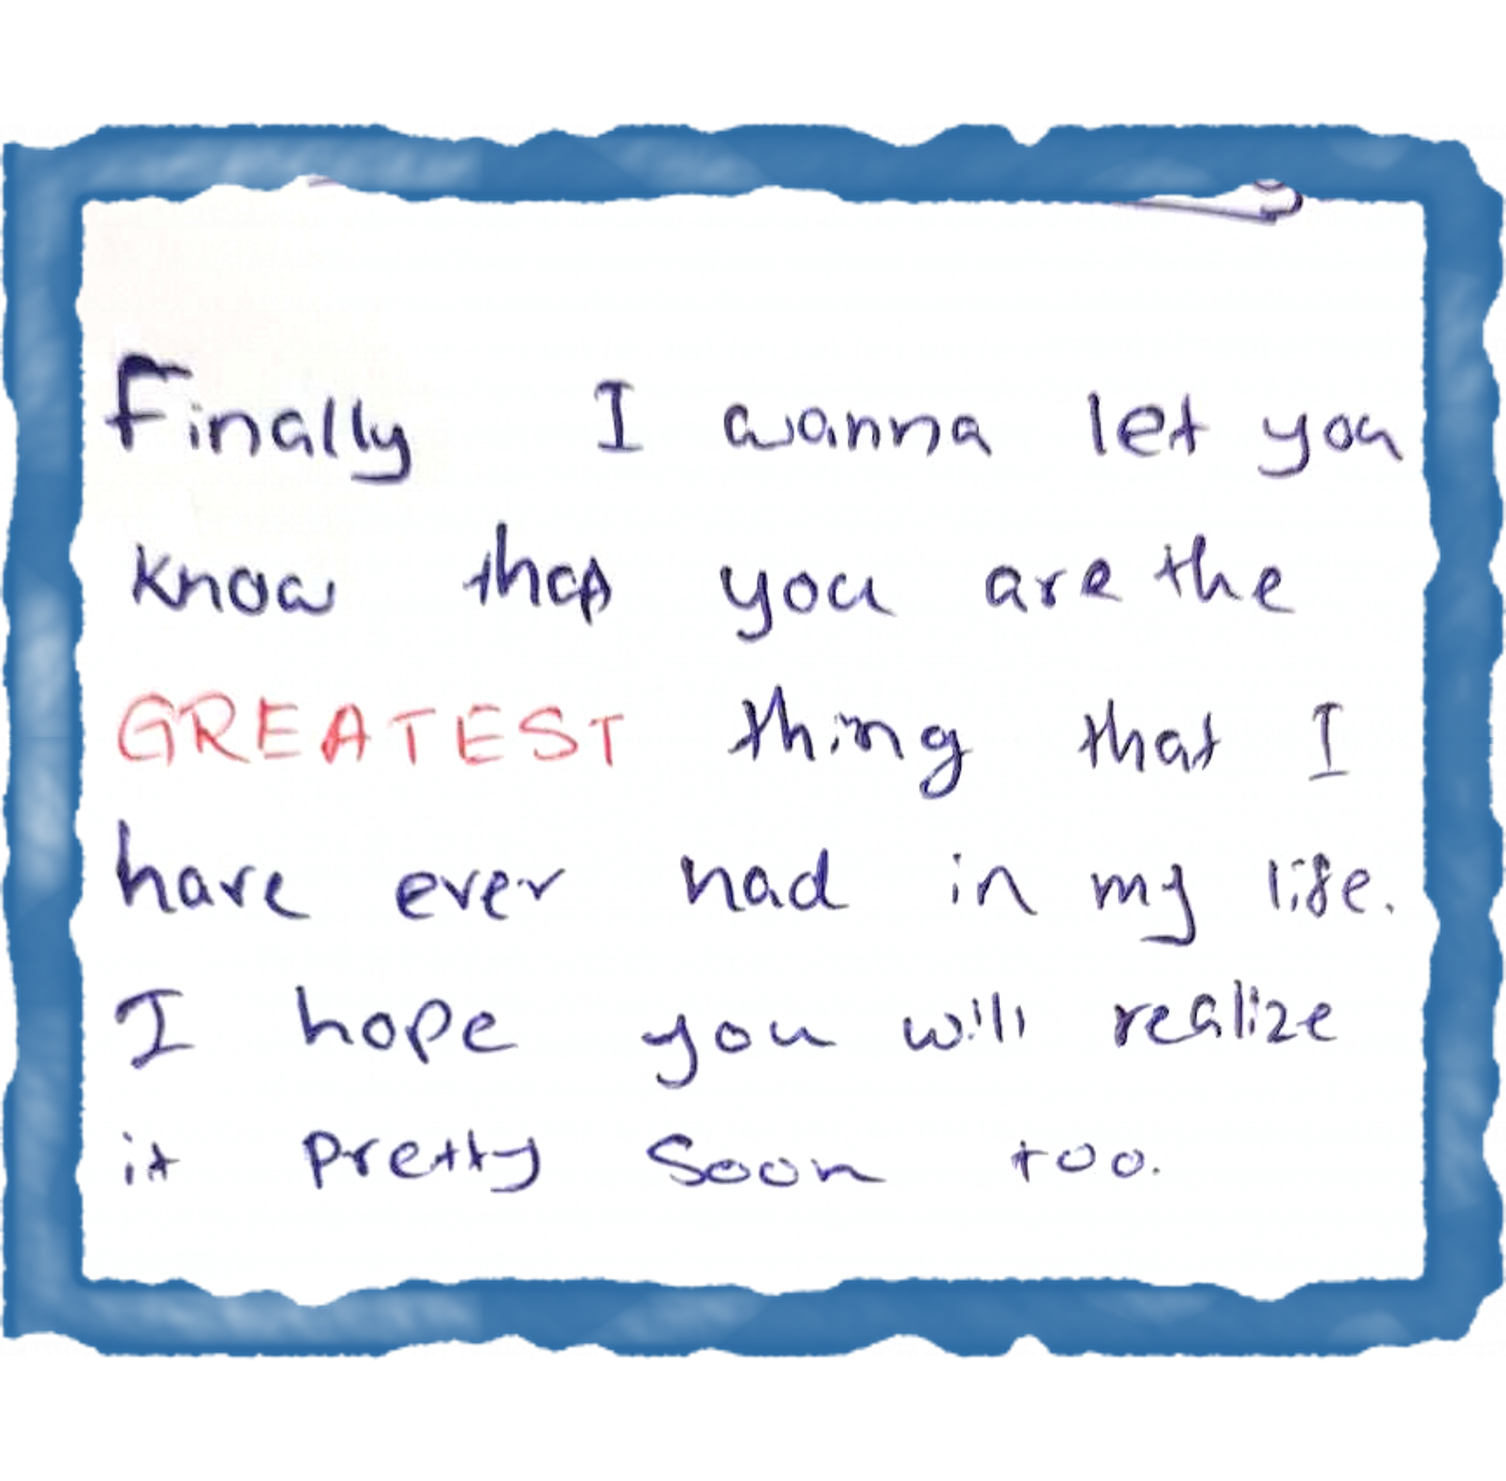 Finally I wanna let you
know that you are the
GREATEST thing that I
have ever had in my life.
I hope you will realize
it pretty soon too.